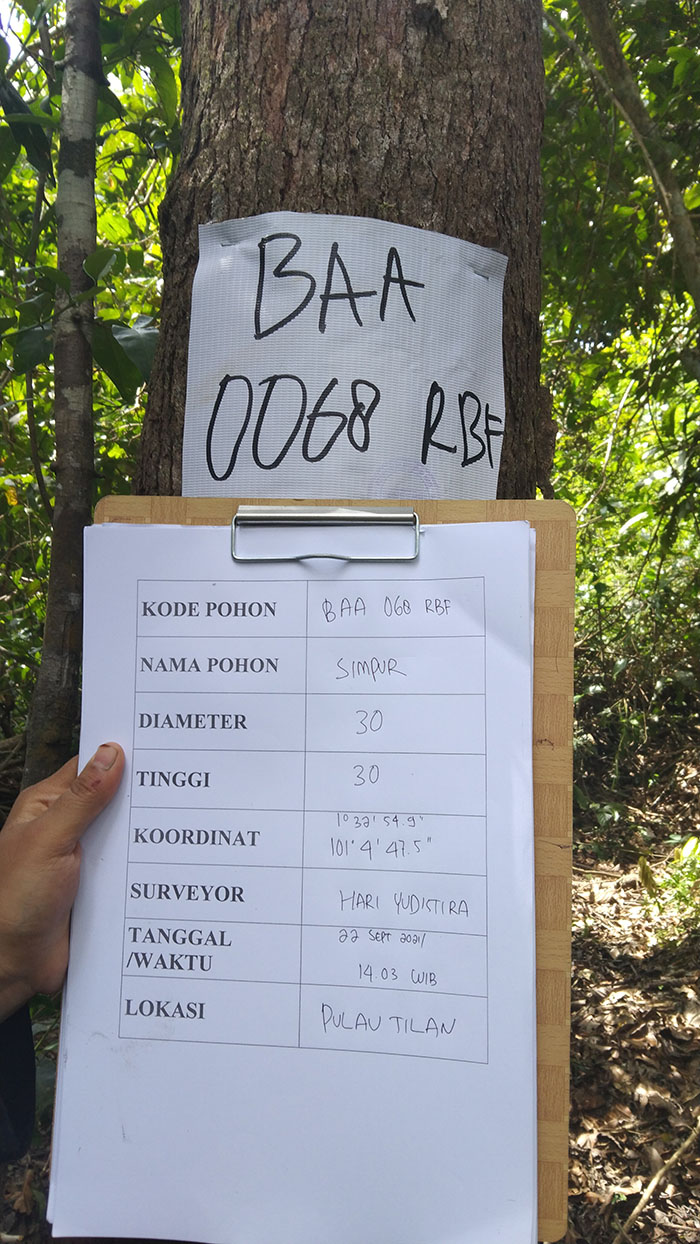 BAA
0068 RBF
KODE POHON BAA 068 RBF
NAMA POHON SIMPUR
DIAMETER 30
TINGGI 30
KOORDINAT 1° 32' 54.9"
101° 4' 47.5"
SURVEYOR HARI YUDISTIRA
TANGGAL 22 SEPT 2021/
/WAKTU 14.03 WIB
LOKASI PULAU TILAN